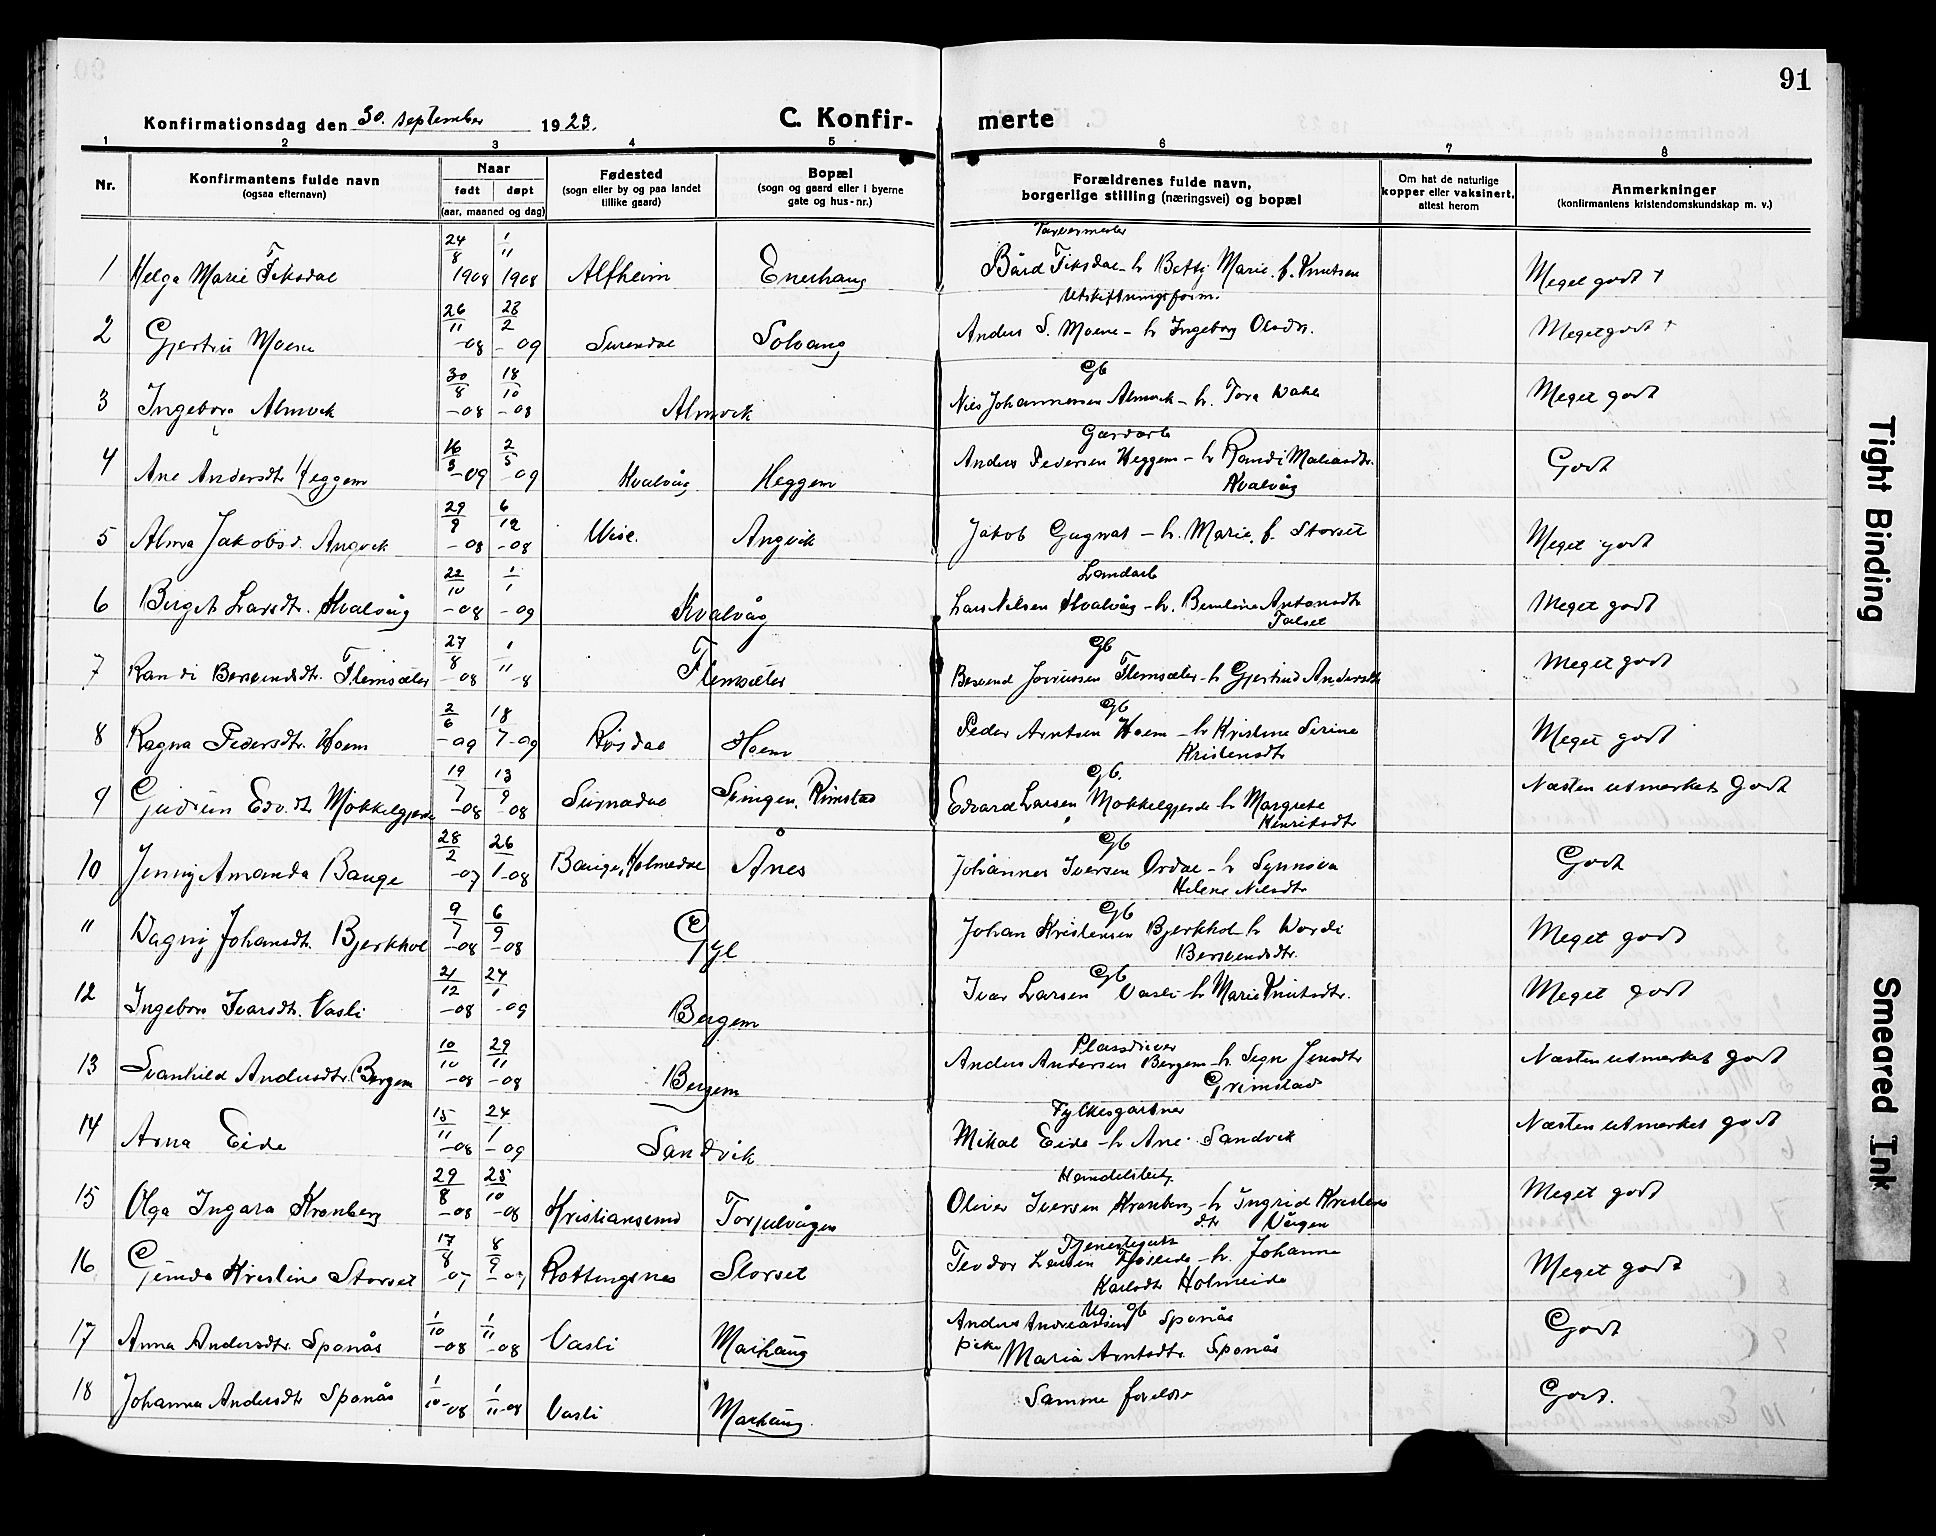 91
Konfirmationsdag den 30. september 1923.
C. Konfirmerte
1 2 3 4 5 6 7 8
Nr.
Konfirmantens fulde navn
(ogsaa efternavn)
Naar
født døpt
(aar, maaned og dag)
Fødested
(sogn eller by og paa landet
tillike gaard)
Bopæl
(sogn og gaard eller i byerne
gate og hus-nr.)
Forældrenes fulde navn,
borgerlige stilling (næringsvei) og bopæl
Om hat de naturlige
kopper eller vaksinert,
attest herom
Anmerkninger
(konfirmantens kristendomskundskap m. v.)
1 Helga Marie Fiksdal 24/8 1908 1/11 1908 Alfheim Enerhaug
Bård Fiksdal - h Betty Marie f. Knutsen Meget godt +
2 Moene 26/11 -08 28/2 -09 Surendal Solvang
Utskiftningsform.
Anders S. Moene - h Ingeborg Olsdtr. Meget godt +
3 Ingeborg Almvik 30/8 -08 18/10 -08 Almvik
Gb
Nils Johannesen Almvik - h. Tora Meget godt
4 Ane Andersdtr Heggem 16/3 -09 2/5 -09 Kvalvåg Heggem
Gardarb
Anders Pedersen Heggem - h Randi
Kvalvåg Godt
5 Alma Jakobsd. Angvik 29/9 -08 6/12 -08 Angvik
Jakob Gugnat - h. Marie f. Storset Meget godt
6 Berget Larsdtr. Kvalvåg 22/10 -08 1/1 -09 Kvalvåg
Landarb
Lars Nilsen Kvalvåg - h. Antonsdtr
Talset Meget godt
7 Randi Bersvendsdtr. Flemsæter 27/8 -08 1/11 -8 Flemsæter
Gb
Bersvend Flemsæter - h Gjertrud Andersdtr Meget godt
8 Ragna Pedersdtr. Hoem 2/6 -09 18/7 -09 Røsdal Hoem
Gb
Peder Arntsen Hoem - h Kristine Serine
Kristensdtr Meget godt
9 Gudrun Edv.dtr Møkkelgjerde 19/7 -08 13/9 -08 Surnadal Svingen, Rimstad
Gb.
Edvard Larsen Møkkelgjerde h Margrete
Henriksdtr Næsten utmerket Godt
10 Jenny Amanda Bauge 28/2 -07 26/1 -08 Bauge, Holmedal Ånes
Gb
Johannes Iversen Ørdal - h Synnøva
Helene Nilsdtr Godt
11 Dagny Johansdtr. Bjerkhol 9/7 -08 6/9 -08 Gyl
Gb
Johan Kristensen Bjerkhol h Dordi
Bersvendsdtr. Meget godt
12 Ingeborg Ivarsdtr. Vasli 21/12 -08 24/1 -09 Bergem
Gb
Ivar Larsen Vasli h Marie Knutsdtr. Meget godt
13 Svanhild Andersdtr. Bergem 10/10 -08 29/11 -08 Bergem
Plassdriver
Anders Andersen Bergem - h. Signe Jensdtr
Grimstad Næsten utmerket godt
14 Arna Eide 15/11 -08 24/1 -09 Sandvik
Fylkesgartner
Mikal Eide - h Ane Sandvik Næsten utmerket godt
15 Olga Ingara Kronberg 29/8 -08 25/10 -08 Kristiansund Torjulvågen
Handelsbetj.
Oliver Iversen Kronberg - h Ingrid Kristens
dtr Vågen Meget godt
16 Kristine Storset 17/8 -07 8/9 -07 Rottingsnes Storset
Tjenestegutt
Teodor Larsen - h. Johanna
Karlsdtr Holmeide Meget godt
17 Anna Andersdtr. Sponås 1/10 -08 1/11 -08 Vasli Maihaug
Ug. gb
Anders Andreassen Sponås
Pike Maria Arntsdtr. Sponås Godt
18 Johanna Andersdtr Sponås 1/10 -08 1/11 -08 Vasli Maihaug
Samme foreldre Godt.
Tight Binding
Smeared Ink